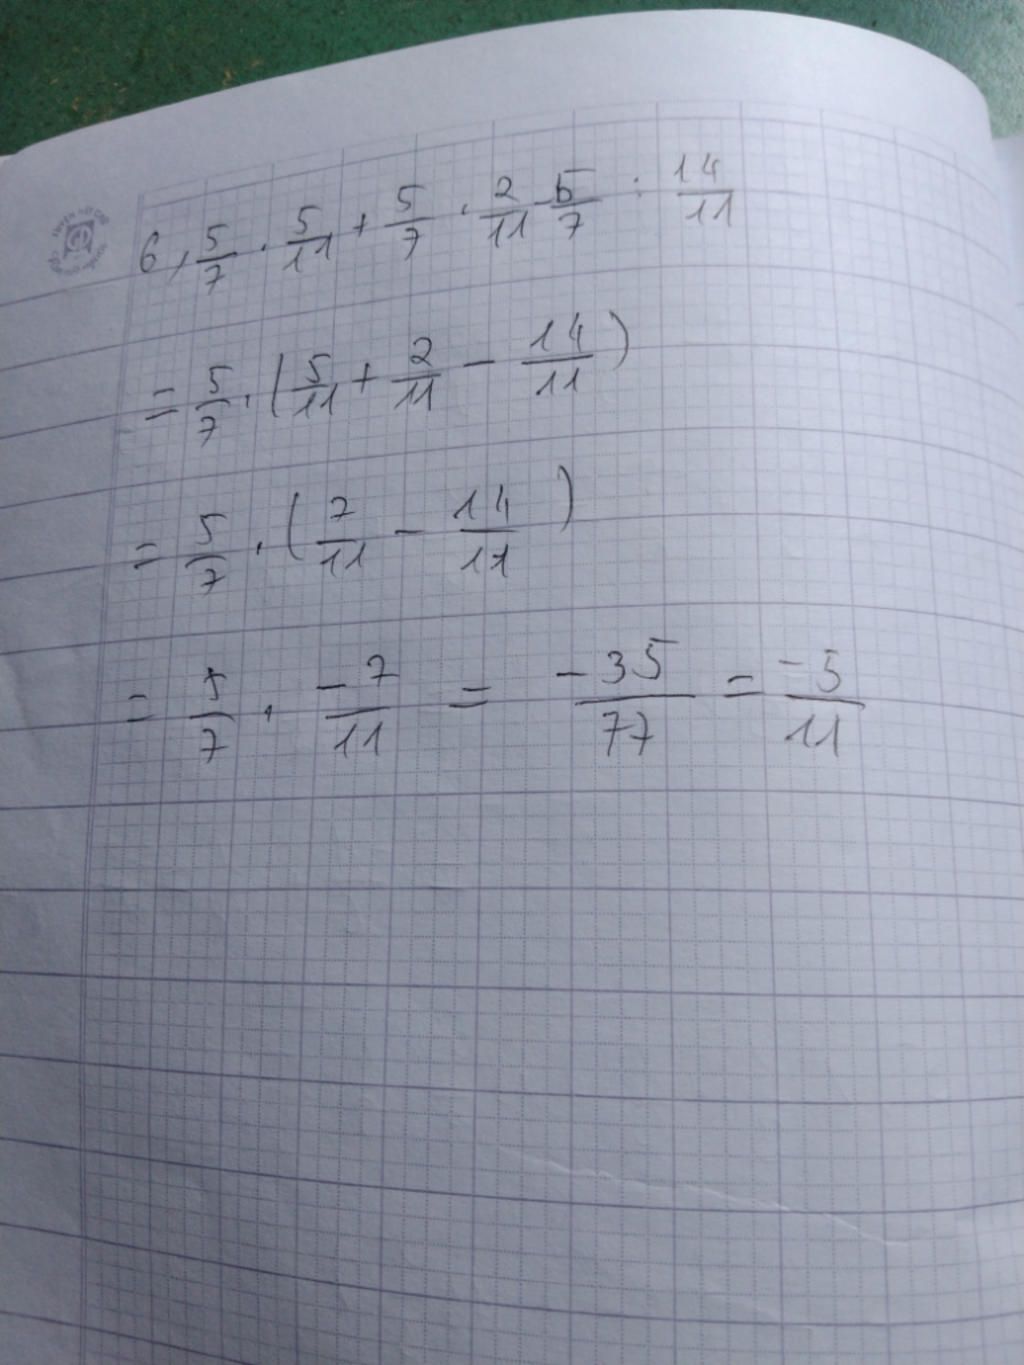 6, 5/7 . 5/11 + 5/7 . 2/11 - 5/7 : 14/11
= 5/7 . (5/11 + 2/11 - 14/11)
= 5/7 . (7/11 - 14/11)
= 5/7 . -7/11 = -35/77 = -5/11